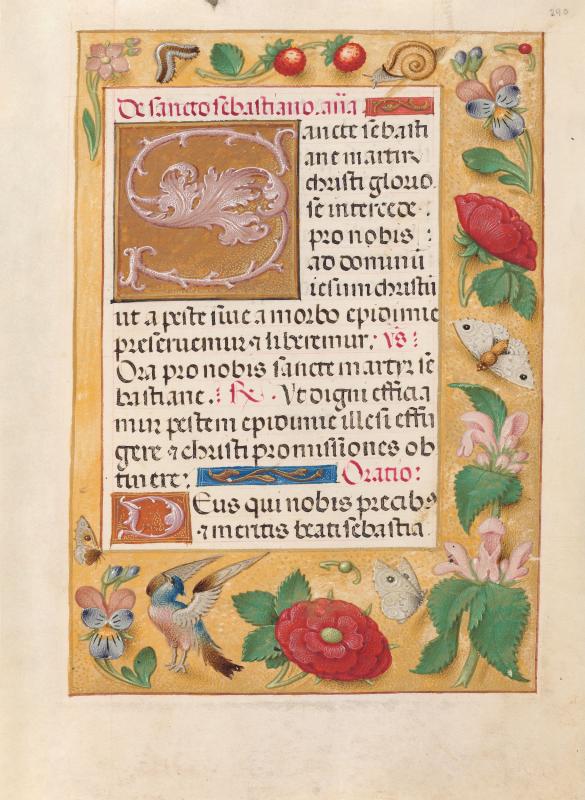 290
De sancto sebastiano. aña
Sancte sebasti
ane martir
christi glorio
se intercede :
pro nobis :
ad dominū
iesum christū
ut a peste siue a morbo epidimie
preseruemur ⁊ liberemur : vs :
Ora pro nobis sancte martyr se
bastiane . : R . Vt digni efficia
mur pestem epidimie illesi effu
gere ⁊ christi promissiones ob
tinere : Oratio :
Deus qui nobis precibꝰ
⁊ meritis beati sebastia